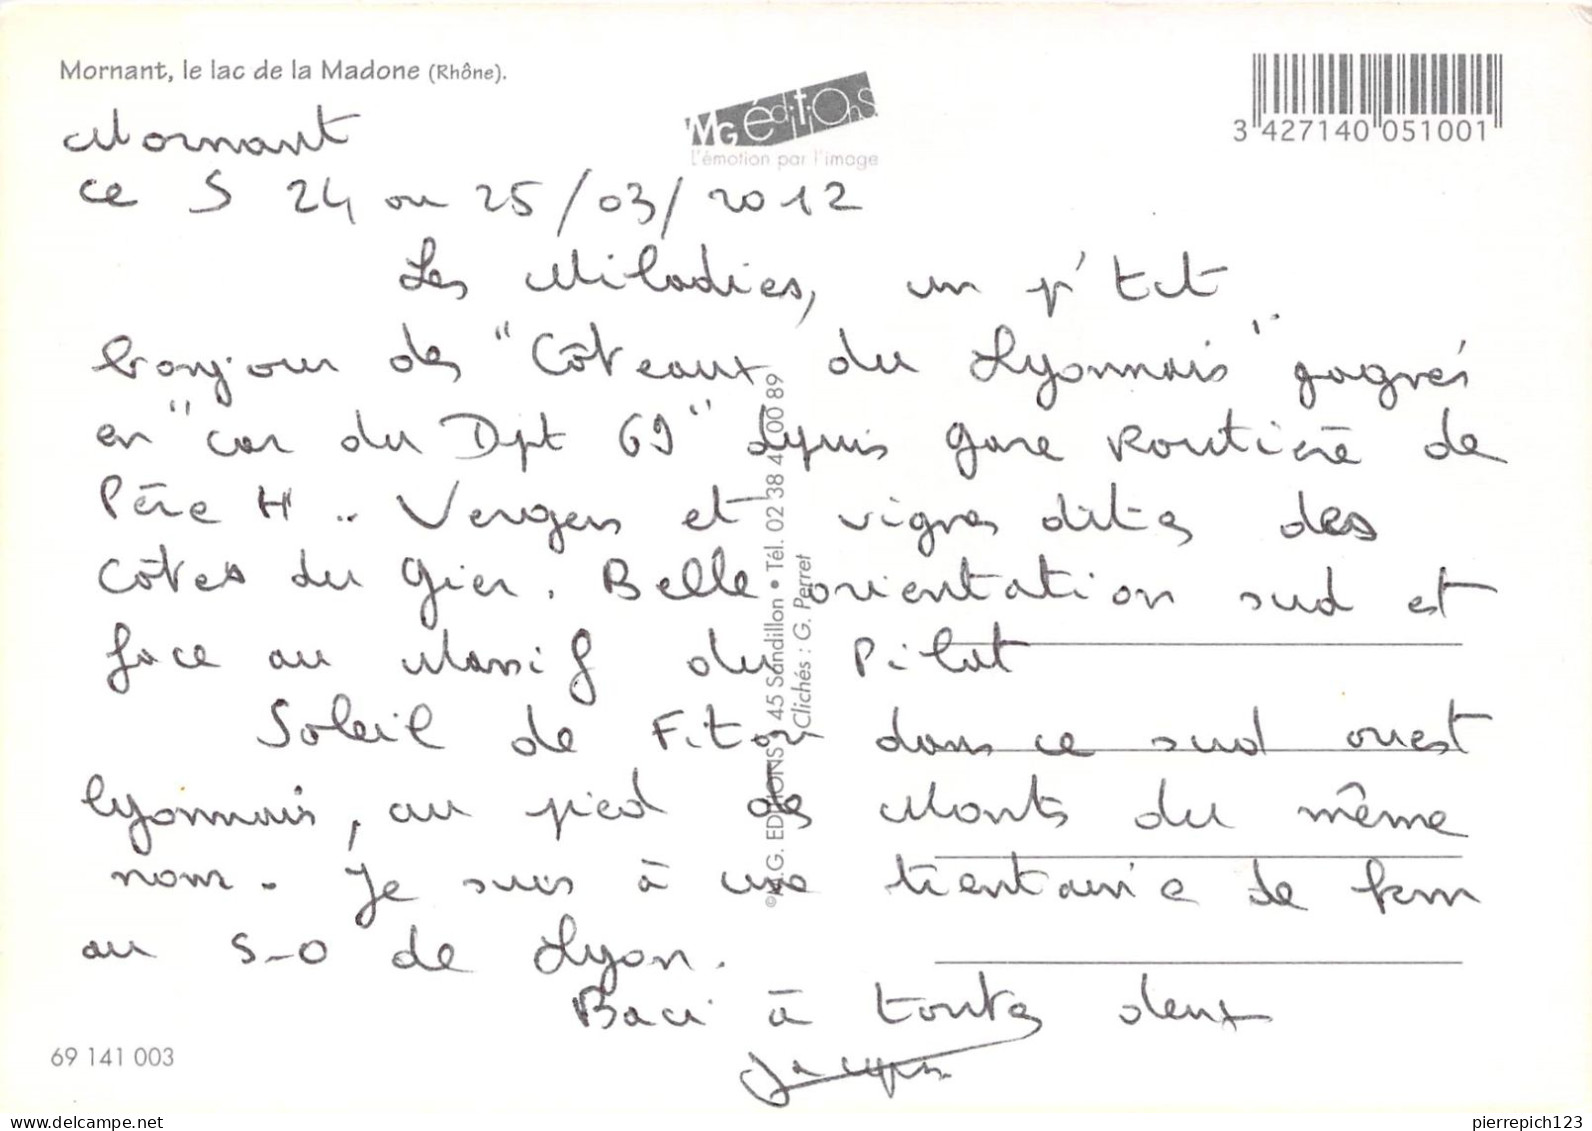 Mornant, le lac de la Madone (Rhône).
MG éditions
L'émotion par l'image
3 427140 051001
Mornant
ce S 24 ou 25/03/2012
Les Miladies, un p'tit
bonjour des "Côteaux du Lyonnais" gagnés
en "car du Dpt 69" depuis gare Routière de
Père H .. Vergers et vignes dites des
Côtes du Gier. Belle orientation sud et
face au Massif du Pilat
Soleil de Fitou dans ce sud ouest
lyonnais, au pied des Monts du même
nom. Je suis à une trentaine de km
au S-O de Lyon.
Baci à toutes deux
Jacques
©M.G. EDITIONS 45 Sandillon • Tél. 02 38 41 00 89
Clichés : G. Perret
69 141 003
pierrepich123